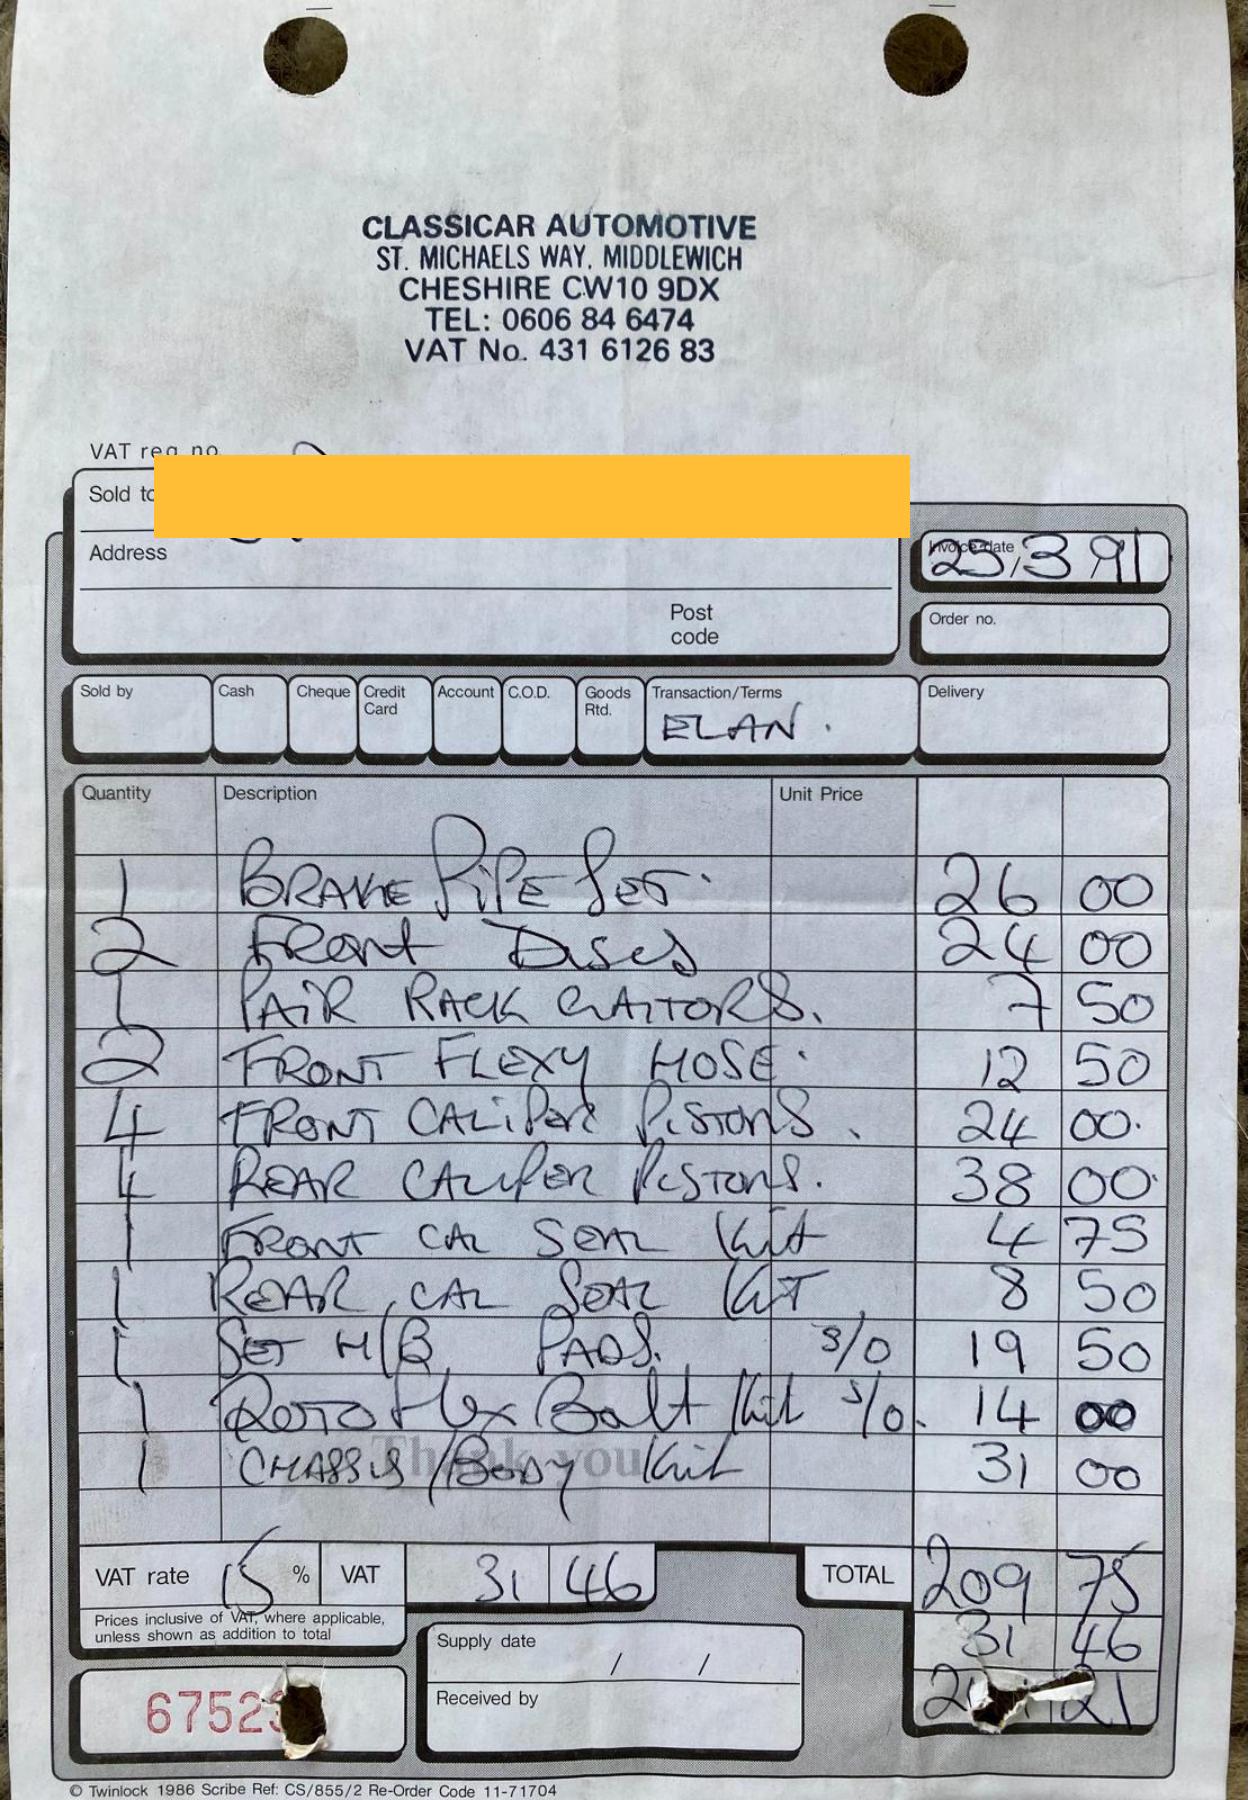 CLASSICAR AUTOMOTIVE
ST. MICHAELS WAY, MIDDLEWICH
CHESHIRE CW10 9DX
TEL: 0606 84 6474
VAT No. 431 6126 83
VAT reg no.
Sold to
Address
Post code
Invoice date 25.3 91
Order no.
Sold by Cash Cheque Credit Card Account C.O.D. Goods Rtd. Transaction/Terms Delivery
ELAN.
Quantity Description Unit Price
1 BRAKE PIPE SET. 26 00
2 FRONT DISCS 24 00
1 PAIR RACK GAITORS. 7 50
2 FRONT FLEXY HOSE. 12 50
4 FRONT CALIPER PISTONS. 24 00.
4 REAR CALIPER PISTONS. 38 00.
1 FRONT CAL SEAL Kit 4 75
1 REAR CAL SEAL KIT 8 50
1 SET H/B PADS. S/O 19 50
1 ROTOFlex Bolt Kit S/O. 14 00
1 CHASSIS/BODY Kit 31 00
Thank you
VAT rate 15 % VAT 31 46 TOTAL 209 75
Prices inclusive of VAT, where applicable,
unless shown as addition to total
31 46
Supply date / /
Received by
6752
21
© Twinlock 1986 Scribe Ref: CS/855/2 Re-Order Code 11-71704